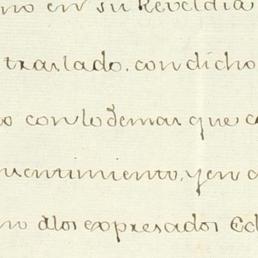 no en su Reveldia
traslado, con dicho
o con lo demas que c
uentimiento, y en
no a los expresados Ed